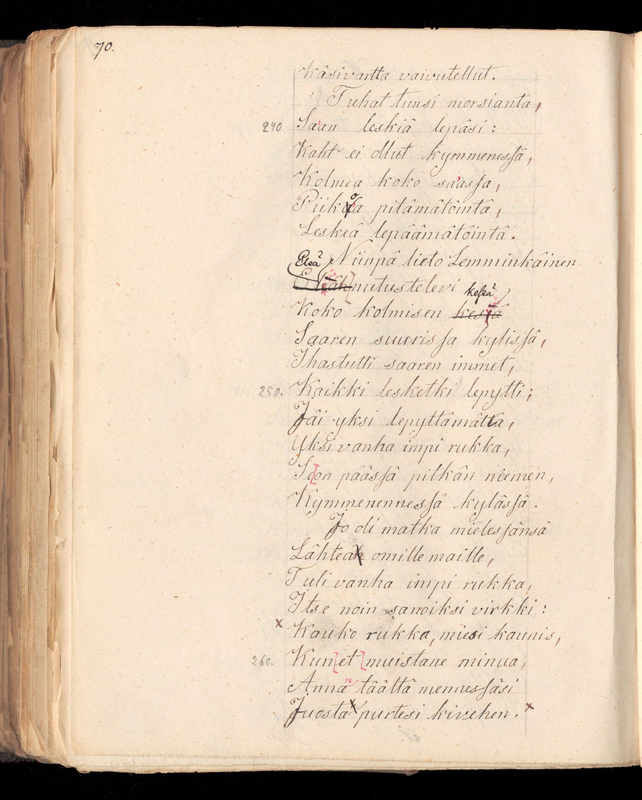 70.
Käsivartta vaivutellut.
Tuhat tunsi morsianta,
240 Sa'an leskiä lepäsi:
Kaht' ei ollut kymmenessä,
Kolmea koko sa'assa,
Piikoa pitämätöintä,
Leskeä lepäämätöintä.
Eleä Niinpä lieto Lemminkäinen
nutustelevi keseä
Koko kolmisen kesiä
Saaren suurissa kylissä,
Ihastutti saaren immet,
250. Kaikki lesketki lepytti;
Jäi yksi lepyttämättä,
Yksi vanha impi rukka,
Son päässä pitkän niemen,
Kymmenennessä kylässä.
Jo oli matka mielessänsä
Lähteä omille maille,
Tuli vanha impi rukka,
Itse noin sanoiksi virkki:
x Kauko rukka, miesi kaunis,
260. Kun et muistane minua,
Annan täältä mennessäsi
Juosta purtesi kivehen. x